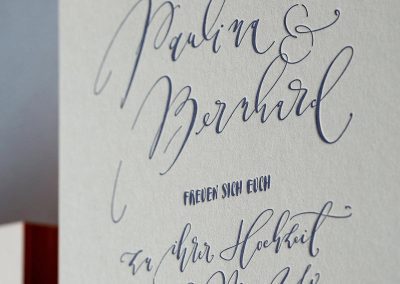 Paulina &
Bernhard
FREUEN SICH EUCH
Zu ihrer Hochzeit